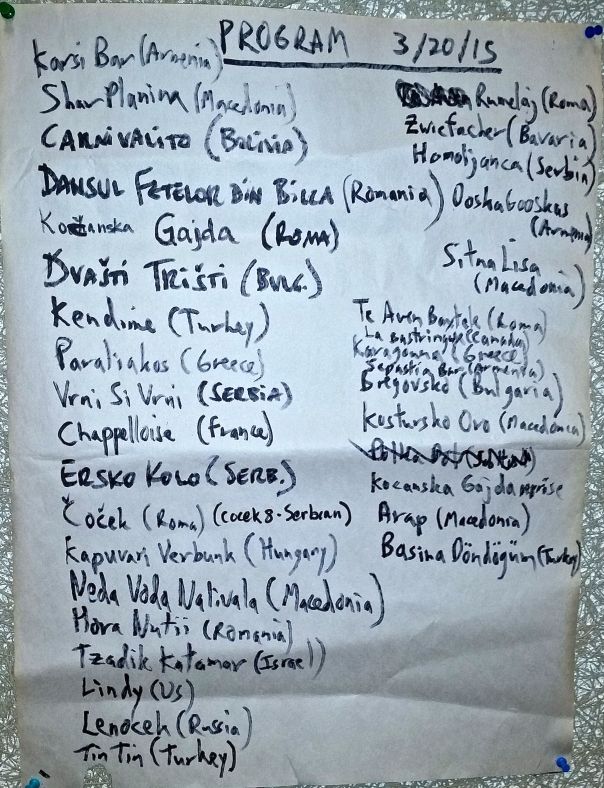 PROGRAM 3/20/15
Karsi Bar (Armenia)
Shar Planina (Macedonia)
CARNIVALITO (BOLIVIA)
DANSUL FETELOR DIN BILCA (Romania)
Kočanska Gajda (ROMA)
DVAŠTI TRIŠTI (BULG.)
Kendime (Turkey)
Paraliakos (Greece)
Vrni Si Vrni (SERBIA)
Chappelloise (France)
ERSKO KOLO (SERB.)
Čoček (Roma) (cocek 8 - Serbian)
Kapuvari Verbunk (Hungary)
Neda Voda Nalivala (Macedonia)
Hora Nutii (Romania)
Tzadik Katamar (Israel)
Lindy (US)
Lenoceh (Russia)
Tin Tin (Turkey)
Rumelaj (Roma)
Zwiefacher (Bavaria)
Homoljanca (Serbia)
Ooska Gooskas
(Armenia)
Sitna Lisa
(Macedonia)
Te Aven Baxtale (Roma)
La Bastringue (Canada)
Karagouna (Greece)
Sepastia Bar (Armenia)
Bregovsko (Bulgaria)
Kostursko Oro (Macedonia)
Kocanska Gajda reprise
Arap (Macedonia)
Basina Döndögüm (Turkey)